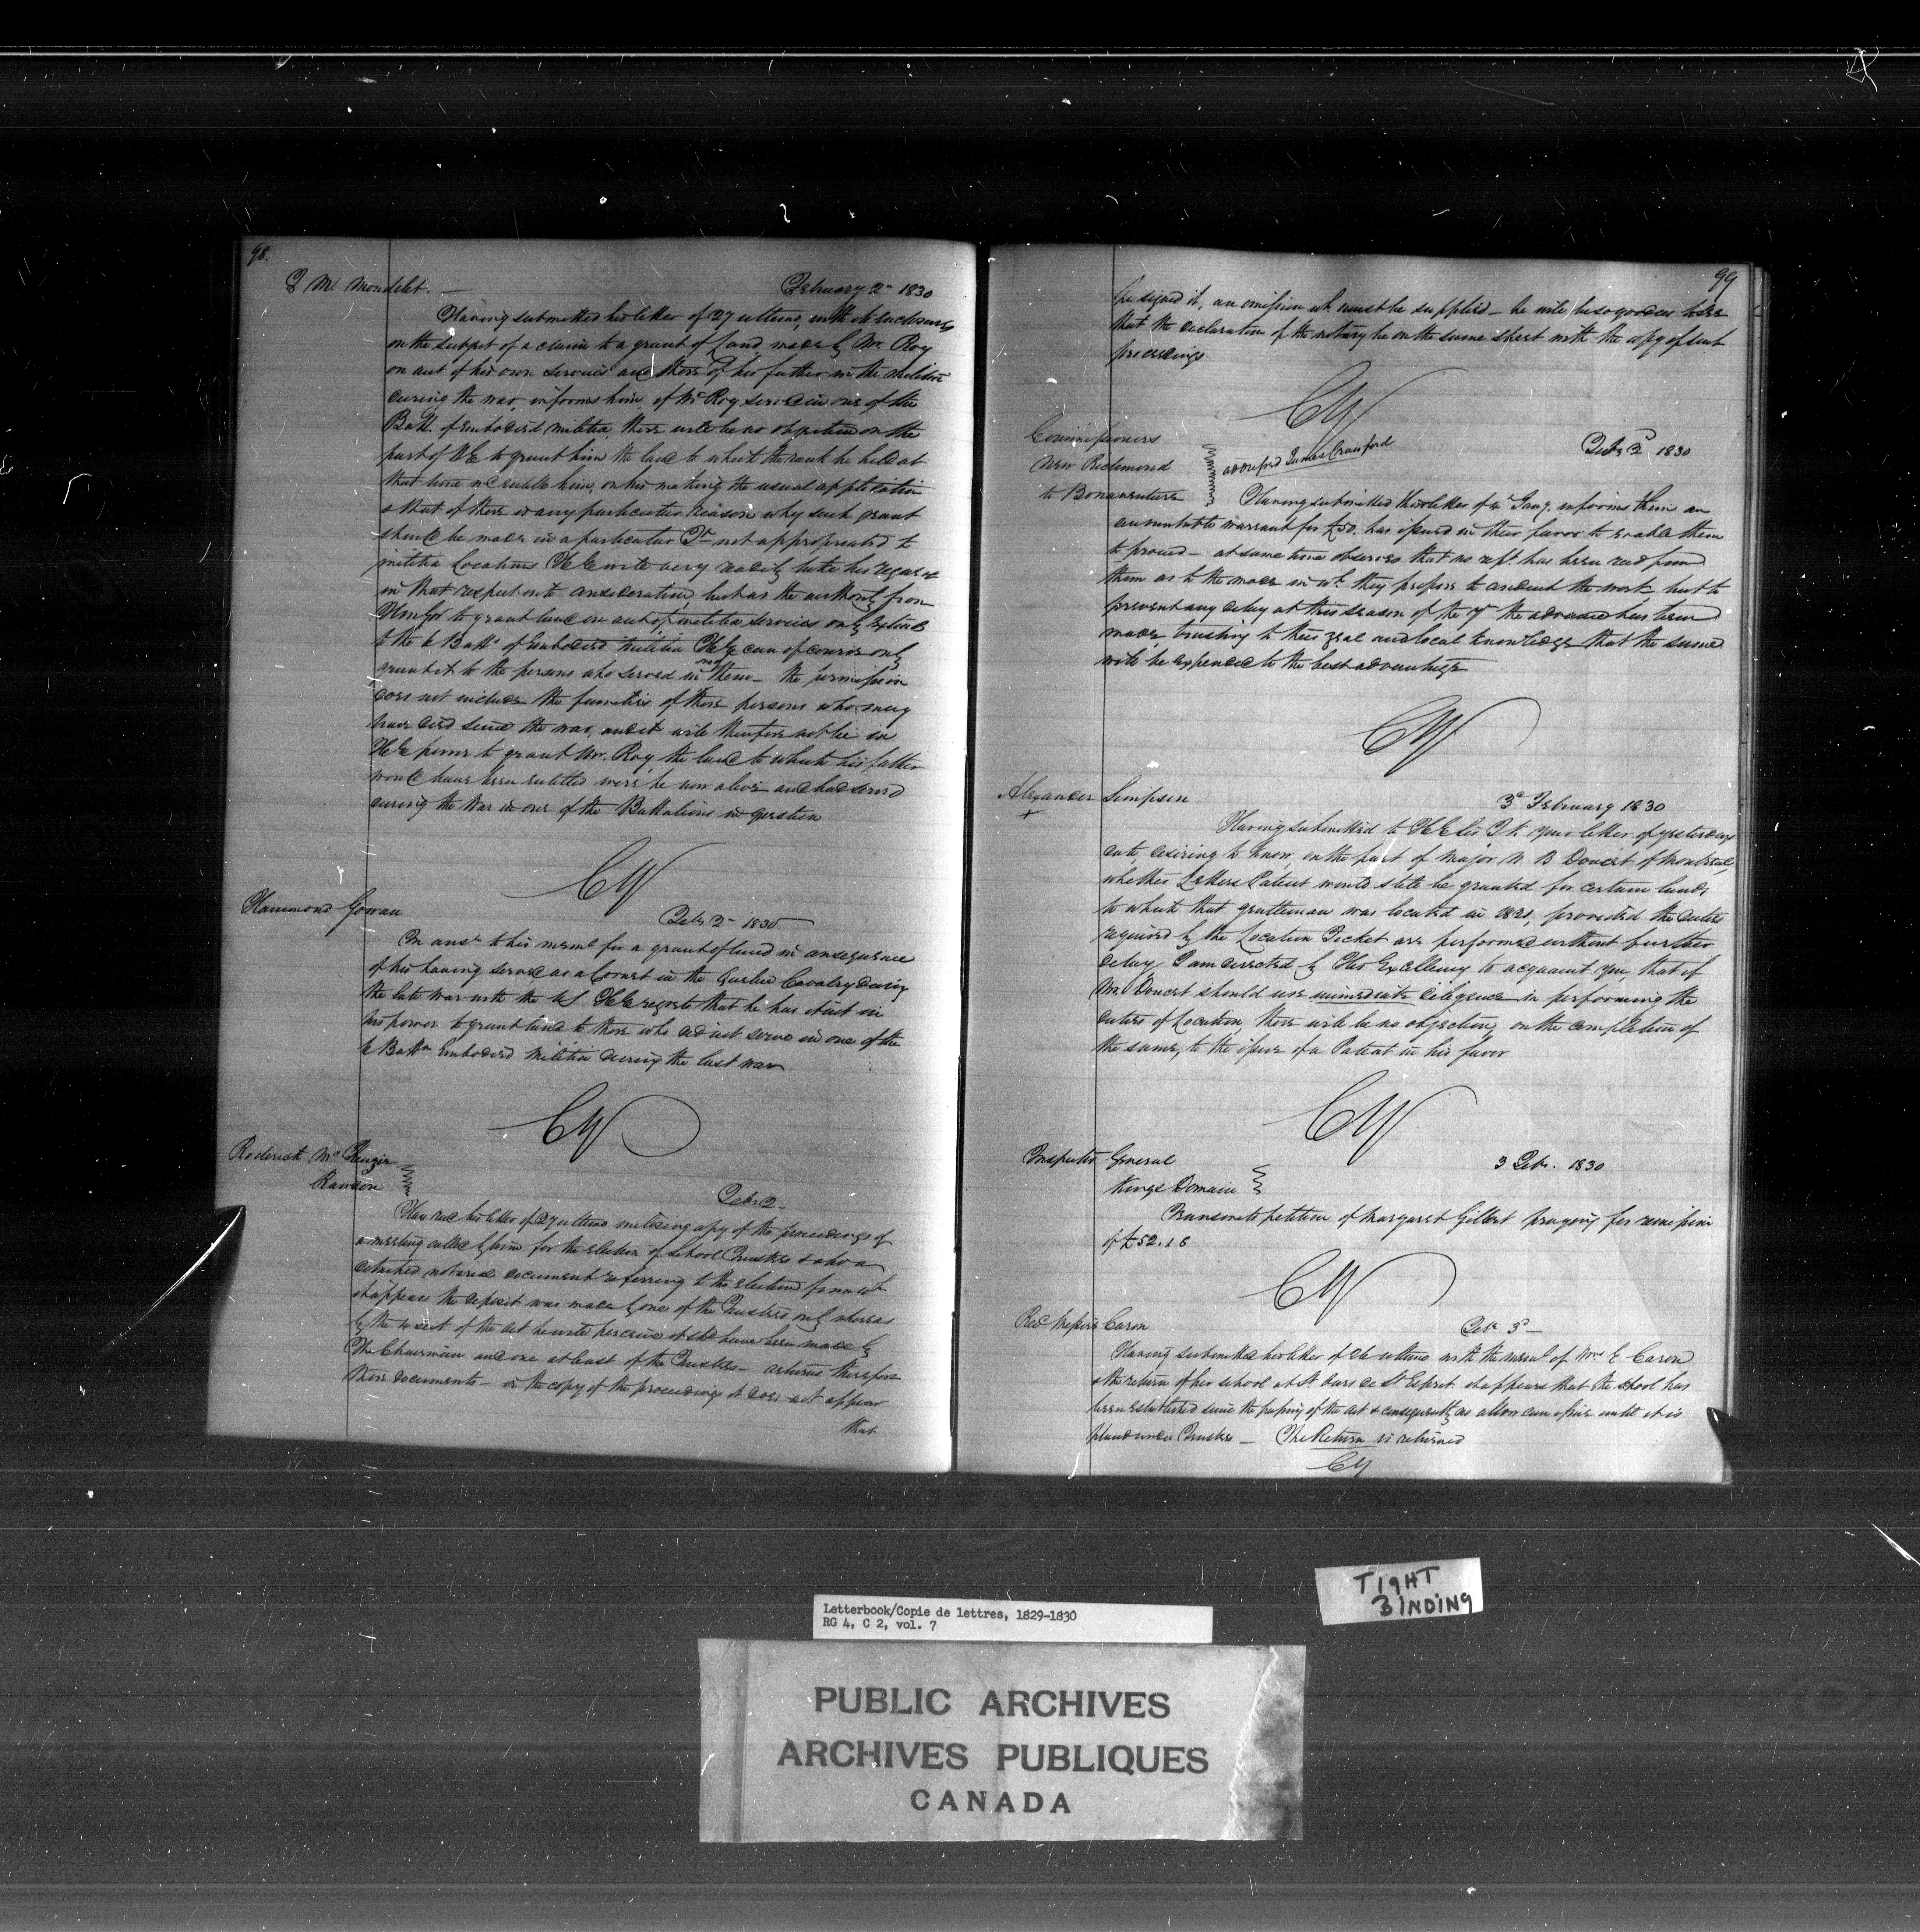 98.
D M. Mondelet. — February 2d 1830
Having submitted his letter of 27 ultimo, with its enclosures
on the subject of a claim to a grant of Land made by Mr. Roy
on acct of his own services and those of his father in the militia
during the war, informs him if Mr Roy served in one of the
Batt. of Embodied militia, there will be no objection on the
part of HE to grant him the land to which the rank he held at
that time wd entitle him, on his making the usual application
& that if there is any particular reason why such grant
should be made in a particular Tp not appropriated to
militia Locations HE will very readily take his request
in that respect into consideration, but as the authority from
Govt to grant land on acct of militia services only extends
to the 6 Batts of Embodied Militia HE can of course only
grant it to the persons who served in them — the permission
does not include the families of those persons who may
have died since the war, and it will therefore not be in
HE power to grant Mr. Roy the land to which his father
would have been entitled were he now alive and had served
during the War in one of the Battalions in question
CY
Hammond Gowan
Feby 2d 1830
In ansr to his meml for a grant of land in consequence
of his having served as a Cornet in the Quebec Cavalry during
the late War with the US HE regrets that he has it not in
his power to grant land to those who did not serve in one of the
6 Battn Embodied Militia during the last war
CY
Roderick McKenzie
Rawdon
Feby 2
Have recd his letter of 27 ultimo enclosing copy of the proceedings of
a meeting called by him for the election of School Trustees & also a
detached notarial document referring to the election from wh
it appears the deposit was made by one of the Trustees only whereas
by the 4 sect of the Act he will perceive it shd have been made by
The Chairman and one at least of the Trustees — returns therefore
those documents — in the copy of the proceedings it does not appear
that
99
he signed it, an omission wh. must be supplied — he will be so good as to see
that the declaration of the notary be on the same sheet with the copy of such
proceedings
CY
Commissioners
New Richmond
to Bonaventure
addressed James Crawford
Feby 2d 1830
Having submitted their letter of 4 Jany. informs them an
accountable warrant for £50. has issued in their favor to enable them
to proceed — at same time observes that no rept. has been recd from
them as to the mode in wh. they propose to conduct the work, but to
prevent any delay at this season of the yr the advance has been
made, trusting to their zeal and local knowledge that the same
will be expended to the best advantage
CY
Alexander Simpson
+
3d February 1830
Having submitted to HE Sir J K. your letter of yesterdays
date, desiring to know, on the part of Major N B Doucet of Montreal,
whether Letters Patent would still be granted for certain lands
to which that gentleman was located in 1821, provided the duties
required by the Location Ticket are performed without further
delay, I am directed by His Excellency to acquaint you, that if
Mr. Doucet should use immediate diligence in performing the
duties of Location, there will be no objection, on the completion of
the same, to the issue of a Patent in his favor
CY
Inspector General
Kings Domain
3 Feby. 1830
Transmits petition of Margaret Gilbert praying for remission
of £52.18
CY
Caron
Feb. 3d —
Having submitted his letter of 26 ultimo with the meml of Mme E Caron
& the return of her school at St. de St Esprit it appears that the school has
been established since the passing of the act & consequently no allowan can issue until it is
placed under Trustees — The Return is returned
CY
TIGHT
BINDING
Letterbook/Copie de lettres, 1829-1830
RG 4, C 2, vol. 7
PUBLIC ARCHIVES
ARCHIVES PUBLIQUES
CANADA